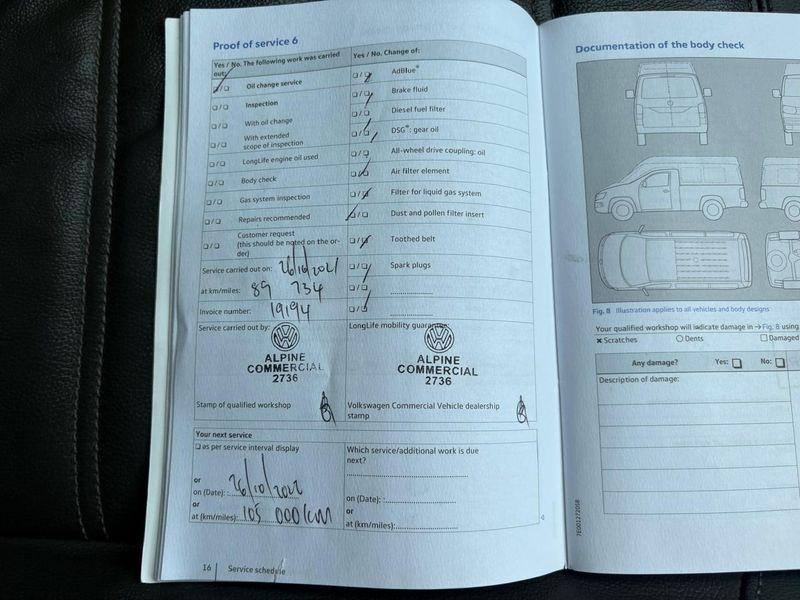 Proof of service 6
Yes / No. The following work was carried out:
❏/❏ Oil change service
❏/❏ Inspection
❏/❏ With oil change
❏/❏ With extended
scope of inspection
❏/❏ LongLife engine oil used
❏/❏ Body check
❏/❏ Gas system inspection
❏/❏ Repairs recommended
❏/❏ Customer request
(this should be noted on the or-
der)
Service carried out on: 26/10/2021
at km/miles: 89 734
Invoice number: 19194
Yes / No. Change of:
❏/❏ AdBlue®
❏/❏ Brake fluid
❏/❏ Diesel fuel filter
❏/❏ DSG®: gear oil
❏/❏ All-wheel drive coupling: oil
❏/❏ Air filter element
❏/❏ Filter for liquid gas system
❏/❏ Dust and pollen filter insert
❏/❏ Toothed belt
❏/❏ Spark plugs
❏/❏ ....................
❏/❏ ....................
Service carried out by:
ALPINE
COMMERCIAL
2736
Stamp of qualified workshop
LongLife mobility guarantee:
ALPINE
COMMERCIAL
2736
Volkswagen Commercial Vehicle dealership
stamp
Your next service
❏ as per service interval display
or
on (Date): 26/10/2022
or
at (km/miles): 105 000km
Which service/additional work is due
next?
on (Date): :
or
at (km/miles):
16 Service schedule
Documentation of the body check
Fig. 8 Illustration applies to all vehicles and body designs
Your qualified workshop will indicate damage in → Fig. 8 using
✖ Scratches ○ Dents ❏ Damaged
Any damage? Yes: ❏ No: ❏
Description of damage:
7E0012720SB